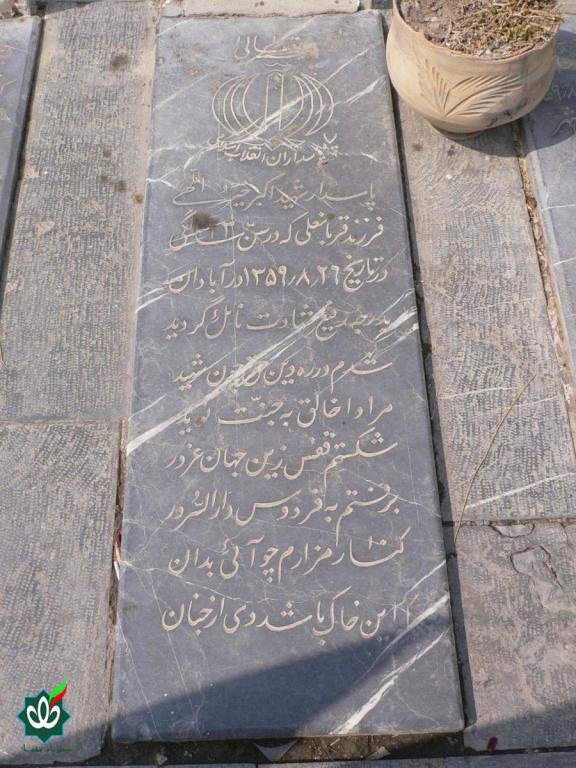 بسمه تعالی
پاسداران انقلاب اسلامی
پاسدار شهید اکبر
فرزند قربانعلی که در سن ۲۳ سالگی
در تاریخ ۱۳۵۹٫۸٫۲۶ در آبادان
بدرجه رفیع شهادت نائل گردید
شدم در ره دین حق چون شهید
مرا داد خالق به جنت نوید
شکستم قفس زین جهان غرور
برفتم به فردوس دارالسرور
کنار مزارم چو آئی بدان
که این خاک باشد وی از جنان